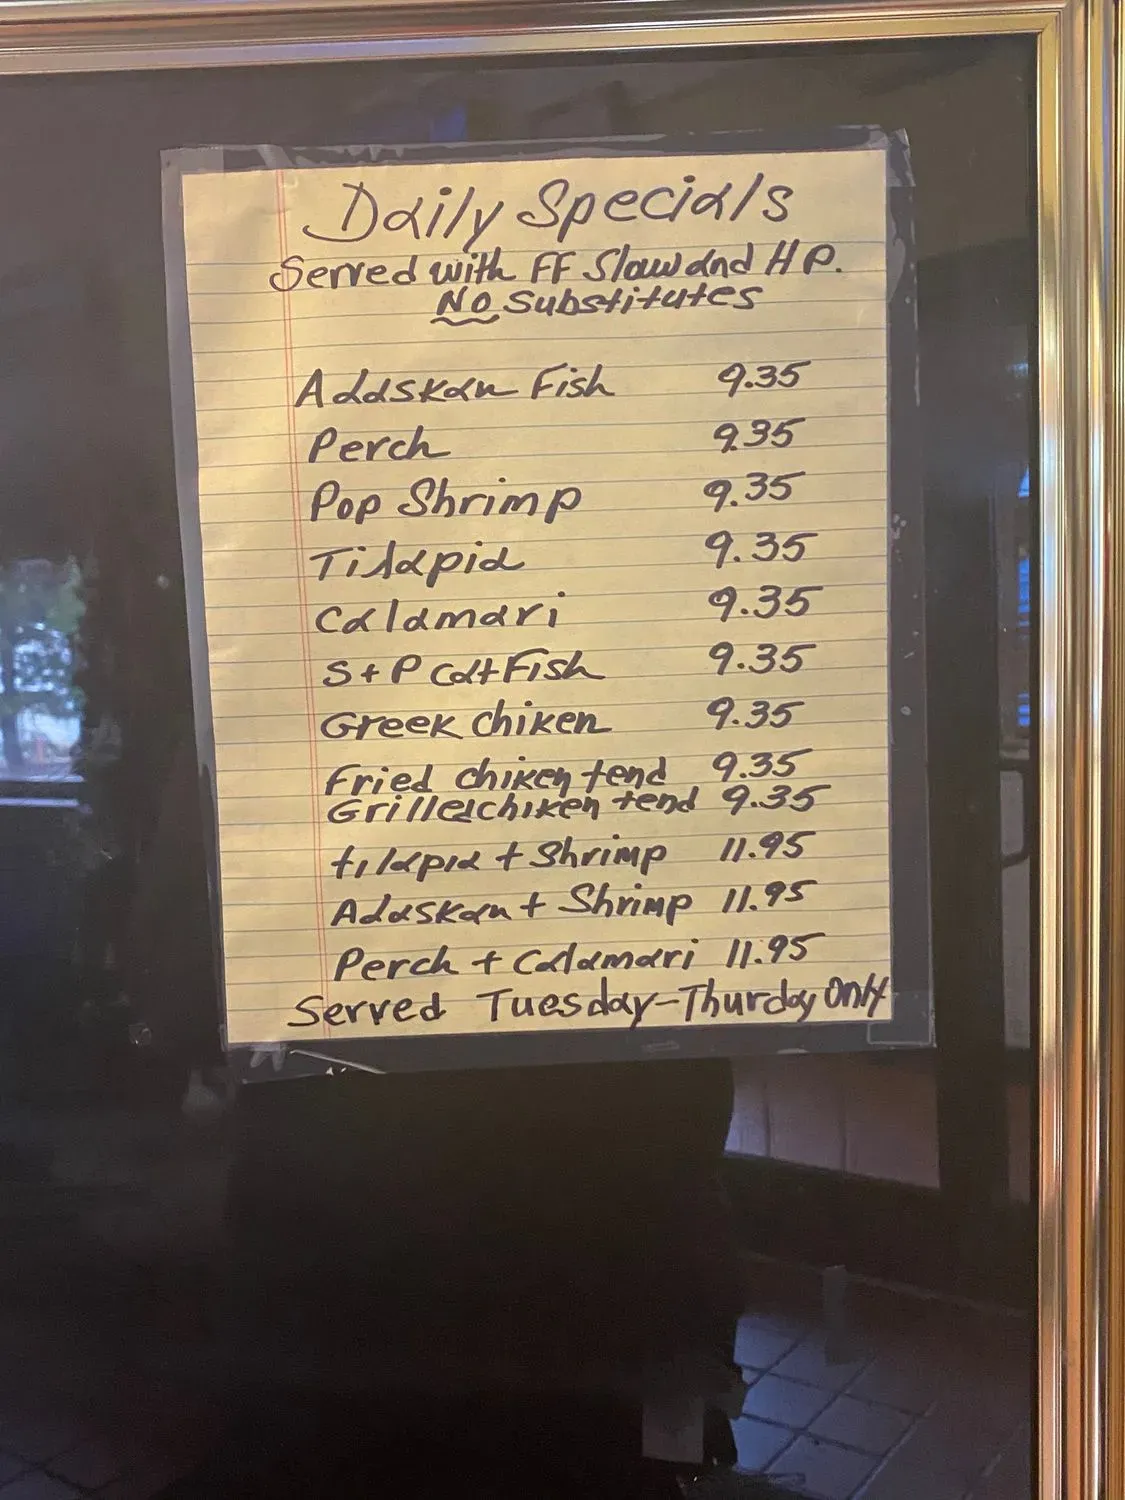 Daily Specials
Served with FF Slaw and HP.
NO Substitutes
Alaskan Fish 9.35
Perch 9.35
Pop Shrimp 9.35
Tilapia 9.35
Calamari 9.35
S+P CatFish 9.35
Greek chiken 9.35
Fried chiken tend 9.35
Grilled chiken tend 9.35
tilapia + Shrimp 11.95
Alaskan + Shrimp 11.95
Perch + Calamari 11.95
Served Tuesday-Thurday Only